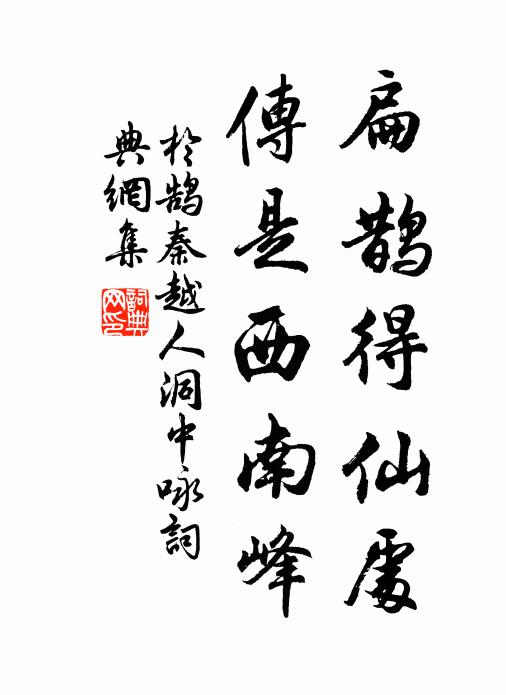 扁鵲得仙處
傳是西南峰
於鵠秦越人洞中咏詞
典網集
詞典
网印